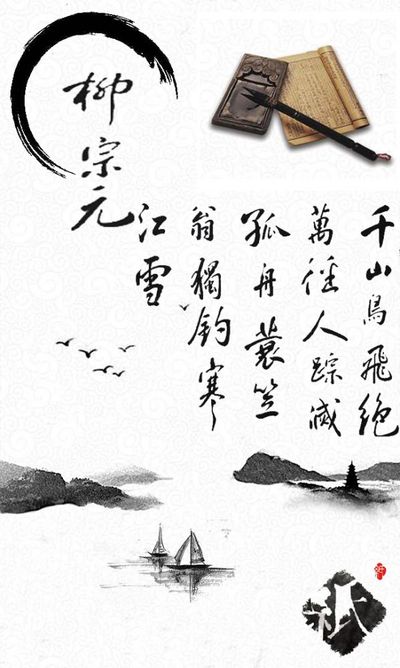 千山鳥飛绝
萬径人踪滅
孤舟蓑笠
翁獨钓寒
江雪
柳宗元